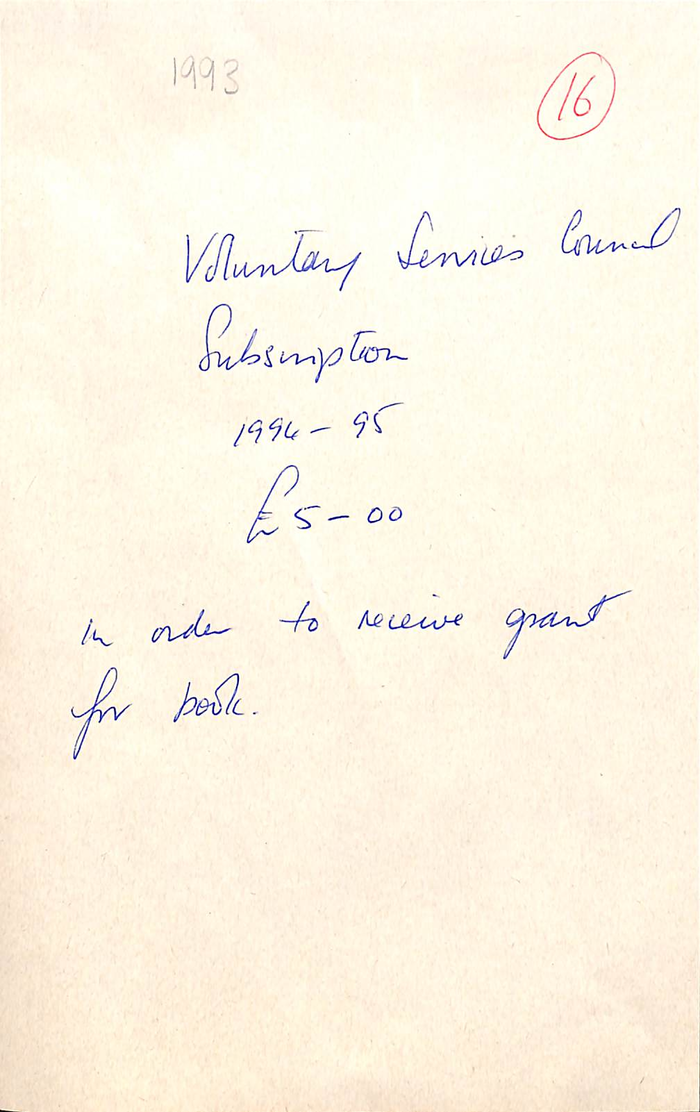 1993
16
Voluntary Services Council
Subscription
1994 - 95
£5-00
in order to receive grant
for book.